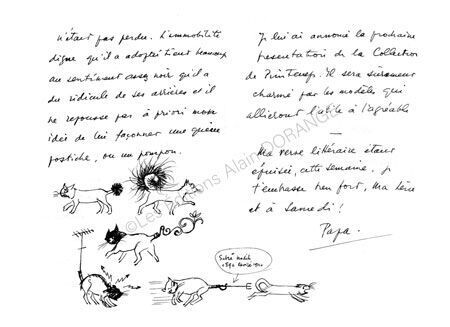 n'était pas perdu. L'immobilité
digne qu'il a adoptée tient beaucoup
au sentiment assez noir qu'il a
du ridicule de ses arrières et il
ne repousse pas à priori mon
idée de lui façonner une queue
postiche, ou un pompon.
Je lui ai annoncé la prochaine
présentation de la Collection
de Printemps. Il sera sûrement
charmé par les modèles qui
allieront l'utile à l'agréable
Ma verve littéraire étant
épuisée, cette semaine, je
t'embrasse bien fort, Ma
et à Samedi !
Papa.
©Les Éditions Alain DORANGE